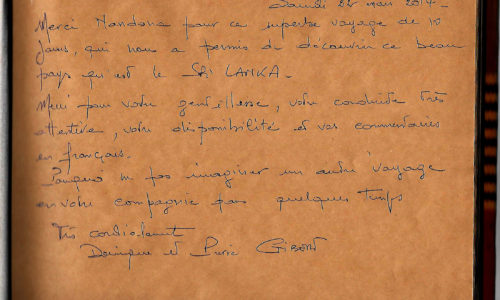 Samedi 22 mars 2014.
Merci Nandana pour ce superbe voyage de 10
jours, qui nous a permis de découvrir ce beau
pays qui est le SRI LANKA.
Merci pour votre gentillesse, votre conduite très
attentive, votre disponibilité et vos commentaires
en français.
Pourquoi ne pas imaginer un autre voyage
en votre compagnie dans quelques temps
Très cordialement
Dominique et